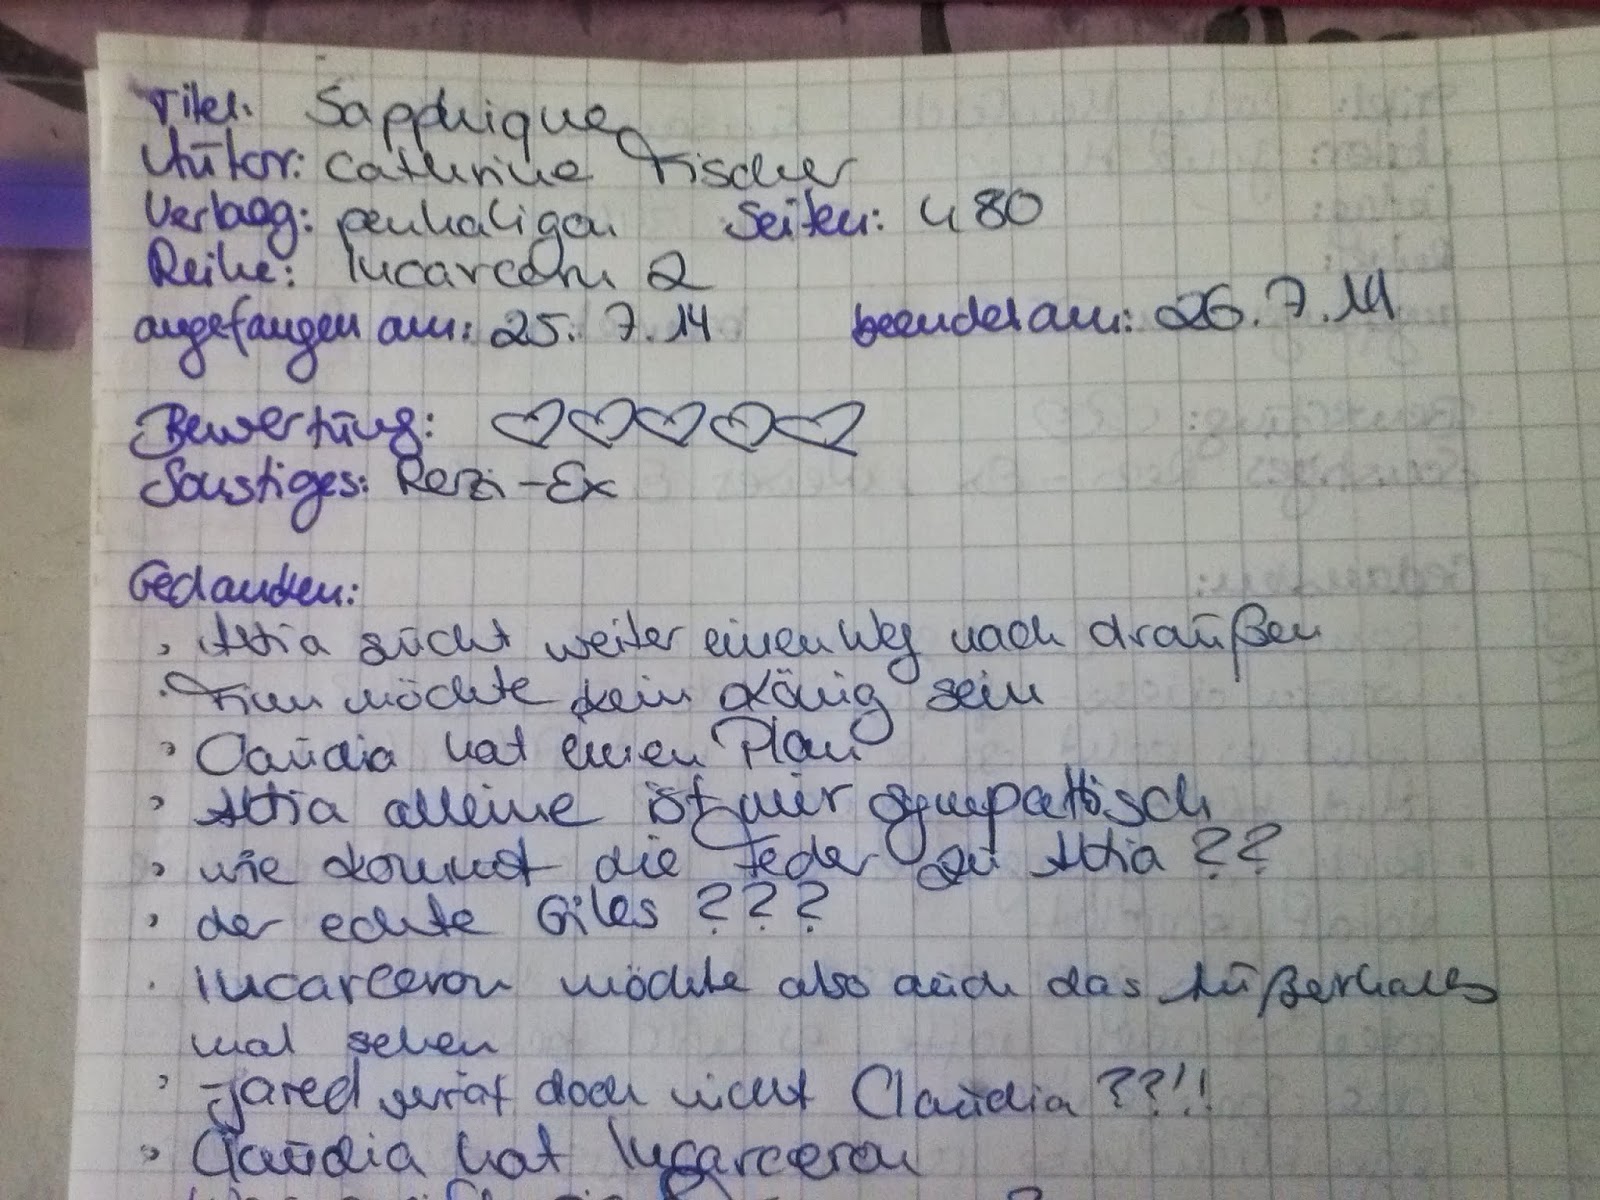 Titel: Sapphique
Autor: Catherine Fischer
Verlag: penhaligon Seiten: 480
Reihe: Incarceron 2
angefangen am: 25. 7. 14 beendet am: 26. 7. 14
Bewertung: ♡♡♡♡♡
Sonstiges: Rezi-Ex
Gedanken:
Attia sucht weiter einen Weg nach draußen
Finn möchte kein König sein
Claudia hat einen Plan
Attia alleine ist mir sympatisch
wie kommt die Feder zu Attia ??
der echte Giles ???
Incarceron möchte also auch das Außerhalb
mal sehen
Jared verrät doch nicht Claudia ??!!
Claudia hat Incarceron